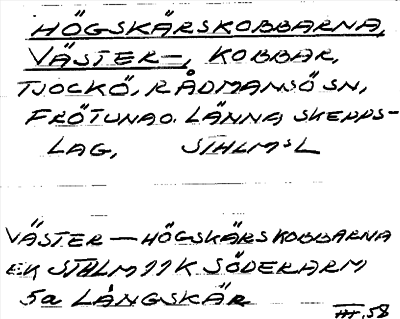 HÖGSKÄRSKOBBARNA,
VÄSTER—, KOBBAR,
TJOCKÖ, RÅDMANSÖ SN,
FRÖTUNA O. LÄNNA SKEPPS-
LAG, STHLMSL
VÄSTER—HÖGSKÄRSKOBBARNA
EK STHLM 11K SÖDERARM
5a LÅNGSKÄR
III.58